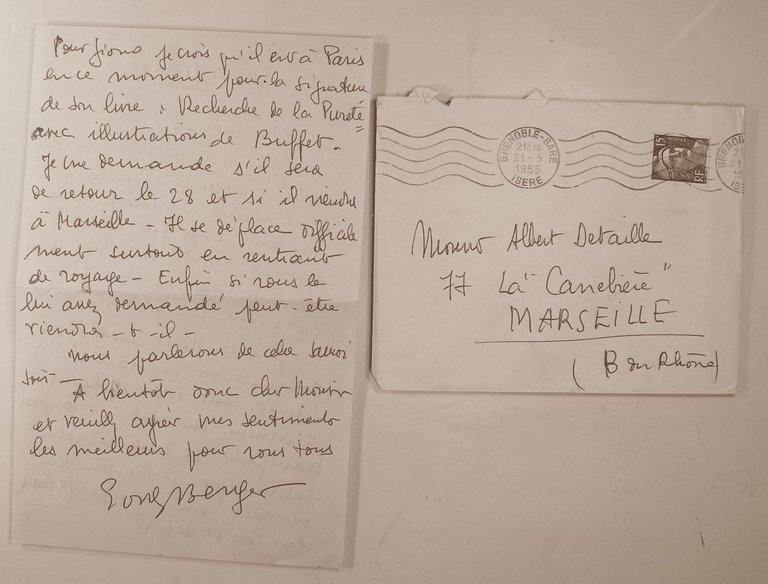 Pour Giono je crois qu'il est à Paris
en ce moment pour la signature
de son livre : Recherche de la Pureté"
avec illustrations de Buffet -
Je me demande s'il sera
de retour le 28 et si il viendra
à Marseille - Il se déplace difficile
ment surtout en rentrant
de voyage - Enfin si vous le
lui avez demandé peut-être
viendra-t-il -
nous parlerons de cela samedi
soir -
A bientôt donc cher Monsieur
et veuillez agréer mes sentiments
les meilleurs pour vous tous
Berger
GRENOBLE-GARE
21-5
1953
ISERE
15
POSTES
RF
Albert Detaille
77 La "Canebière"
MARSEILLE
(B du Rhône)